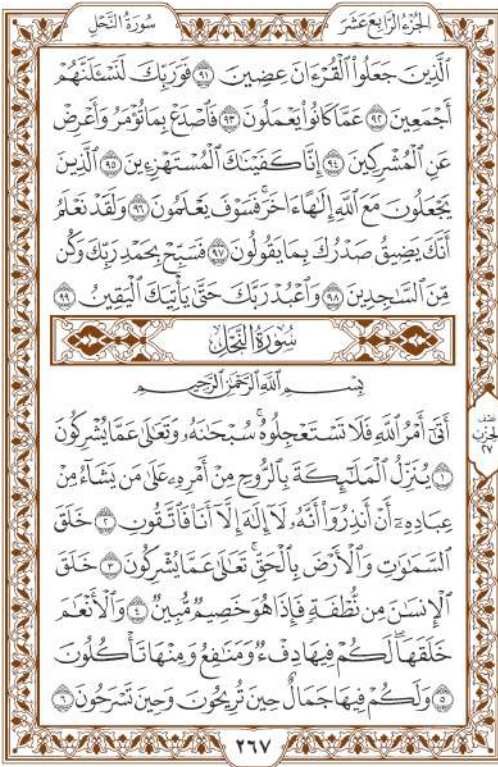 الجزء الرابع عشر سورة النحل
ٱلَّذِينَ جَعَلُوا۟ ٱلْقُرْءَانَ عِضِينَ ٩١ فَوَرَبِّكَ لَنَسْـَٔلَنَّهُمْ
أَجْمَعِينَ ٩٢ عَمَّا كَانُوا۟ يَعْمَلُونَ ٩٣ فَٱصْدَعْ بِمَا تُؤْمَرُ وَأَعْرِضْ
عَنِ ٱلْمُشْرِكِينَ ٩٤ إِنَّا كَفَيْنَـٰكَ ٱلْمُسْتَهْزِءِينَ ٩٥ ٱلَّذِينَ
يَجْعَلُونَ مَعَ ٱللَّهِ إِلَـٰهًا ءَاخَرَ ۚ فَسَوْفَ يَعْلَمُونَ ٩٦ وَلَقَدْ نَعْلَمُ
أَنَّكَ يَضِيقُ صَدْرُكَ بِمَا يَقُولُونَ ٩٧ فَسَبِّحْ بِحَمْدِ رَبِّكَ وَكُن
مِّنَ ٱلسَّـٰجِدِينَ ٩٨ وَٱعْبُدْ رَبَّكَ حَتَّىٰ يَأْتِيَكَ ٱلْيَقِينُ ٩٩
سُورَةُ النَّحْلِ
بِسْمِ ٱللَّهِ ٱلرَّحْمَـٰنِ ٱلرَّحِيمِ
أَتَىٰٓ أَمْرُ ٱللَّهِ فَلَا تَسْتَعْجِلُوهُ ۚ سُبْحَـٰنَهُۥ وَتَعَـٰلَىٰ عَمَّا يُشْرِكُونَ
١ يُنَزِّلُ ٱلْمَلَـٰٓئِكَةَ بِٱلرُّوحِ مِنْ أَمْرِهِۦ عَلَىٰ مَن يَشَآءُ مِنْ
عِبَادِهِۦٓ أَنْ أَنذِرُوٓا۟ أَنَّهُۥ لَآ إِلَـٰهَ إِلَّآ أَنَا۠ فَٱتَّقُونِ ٢ خَلَقَ
ٱلسَّمَـٰوَٰتِ وَٱلْأَرْضَ بِٱلْحَقِّ ۚ تَعَـٰلَىٰ عَمَّا يُشْرِكُونَ ٣ خَلَقَ
ٱلْإِنسَـٰنَ مِن نُّطْفَةٍ فَإِذَا هُوَ خَصِيمٌ مُّبِينٌ ٤ وَٱلْأَنْعَـٰمَ
خَلَقَهَا ۗ لَكُمْ فِيهَا دِفْءٌ وَمَنَـٰفِعُ وَمِنْهَا تَأْكُلُونَ
٥ وَلَكُمْ فِيهَا جَمَالٌ حِينَ تُرِيحُونَ وَحِينَ تَسْرَحُونَ ٦
نصف
الحزب
٢٧
٢٦٧